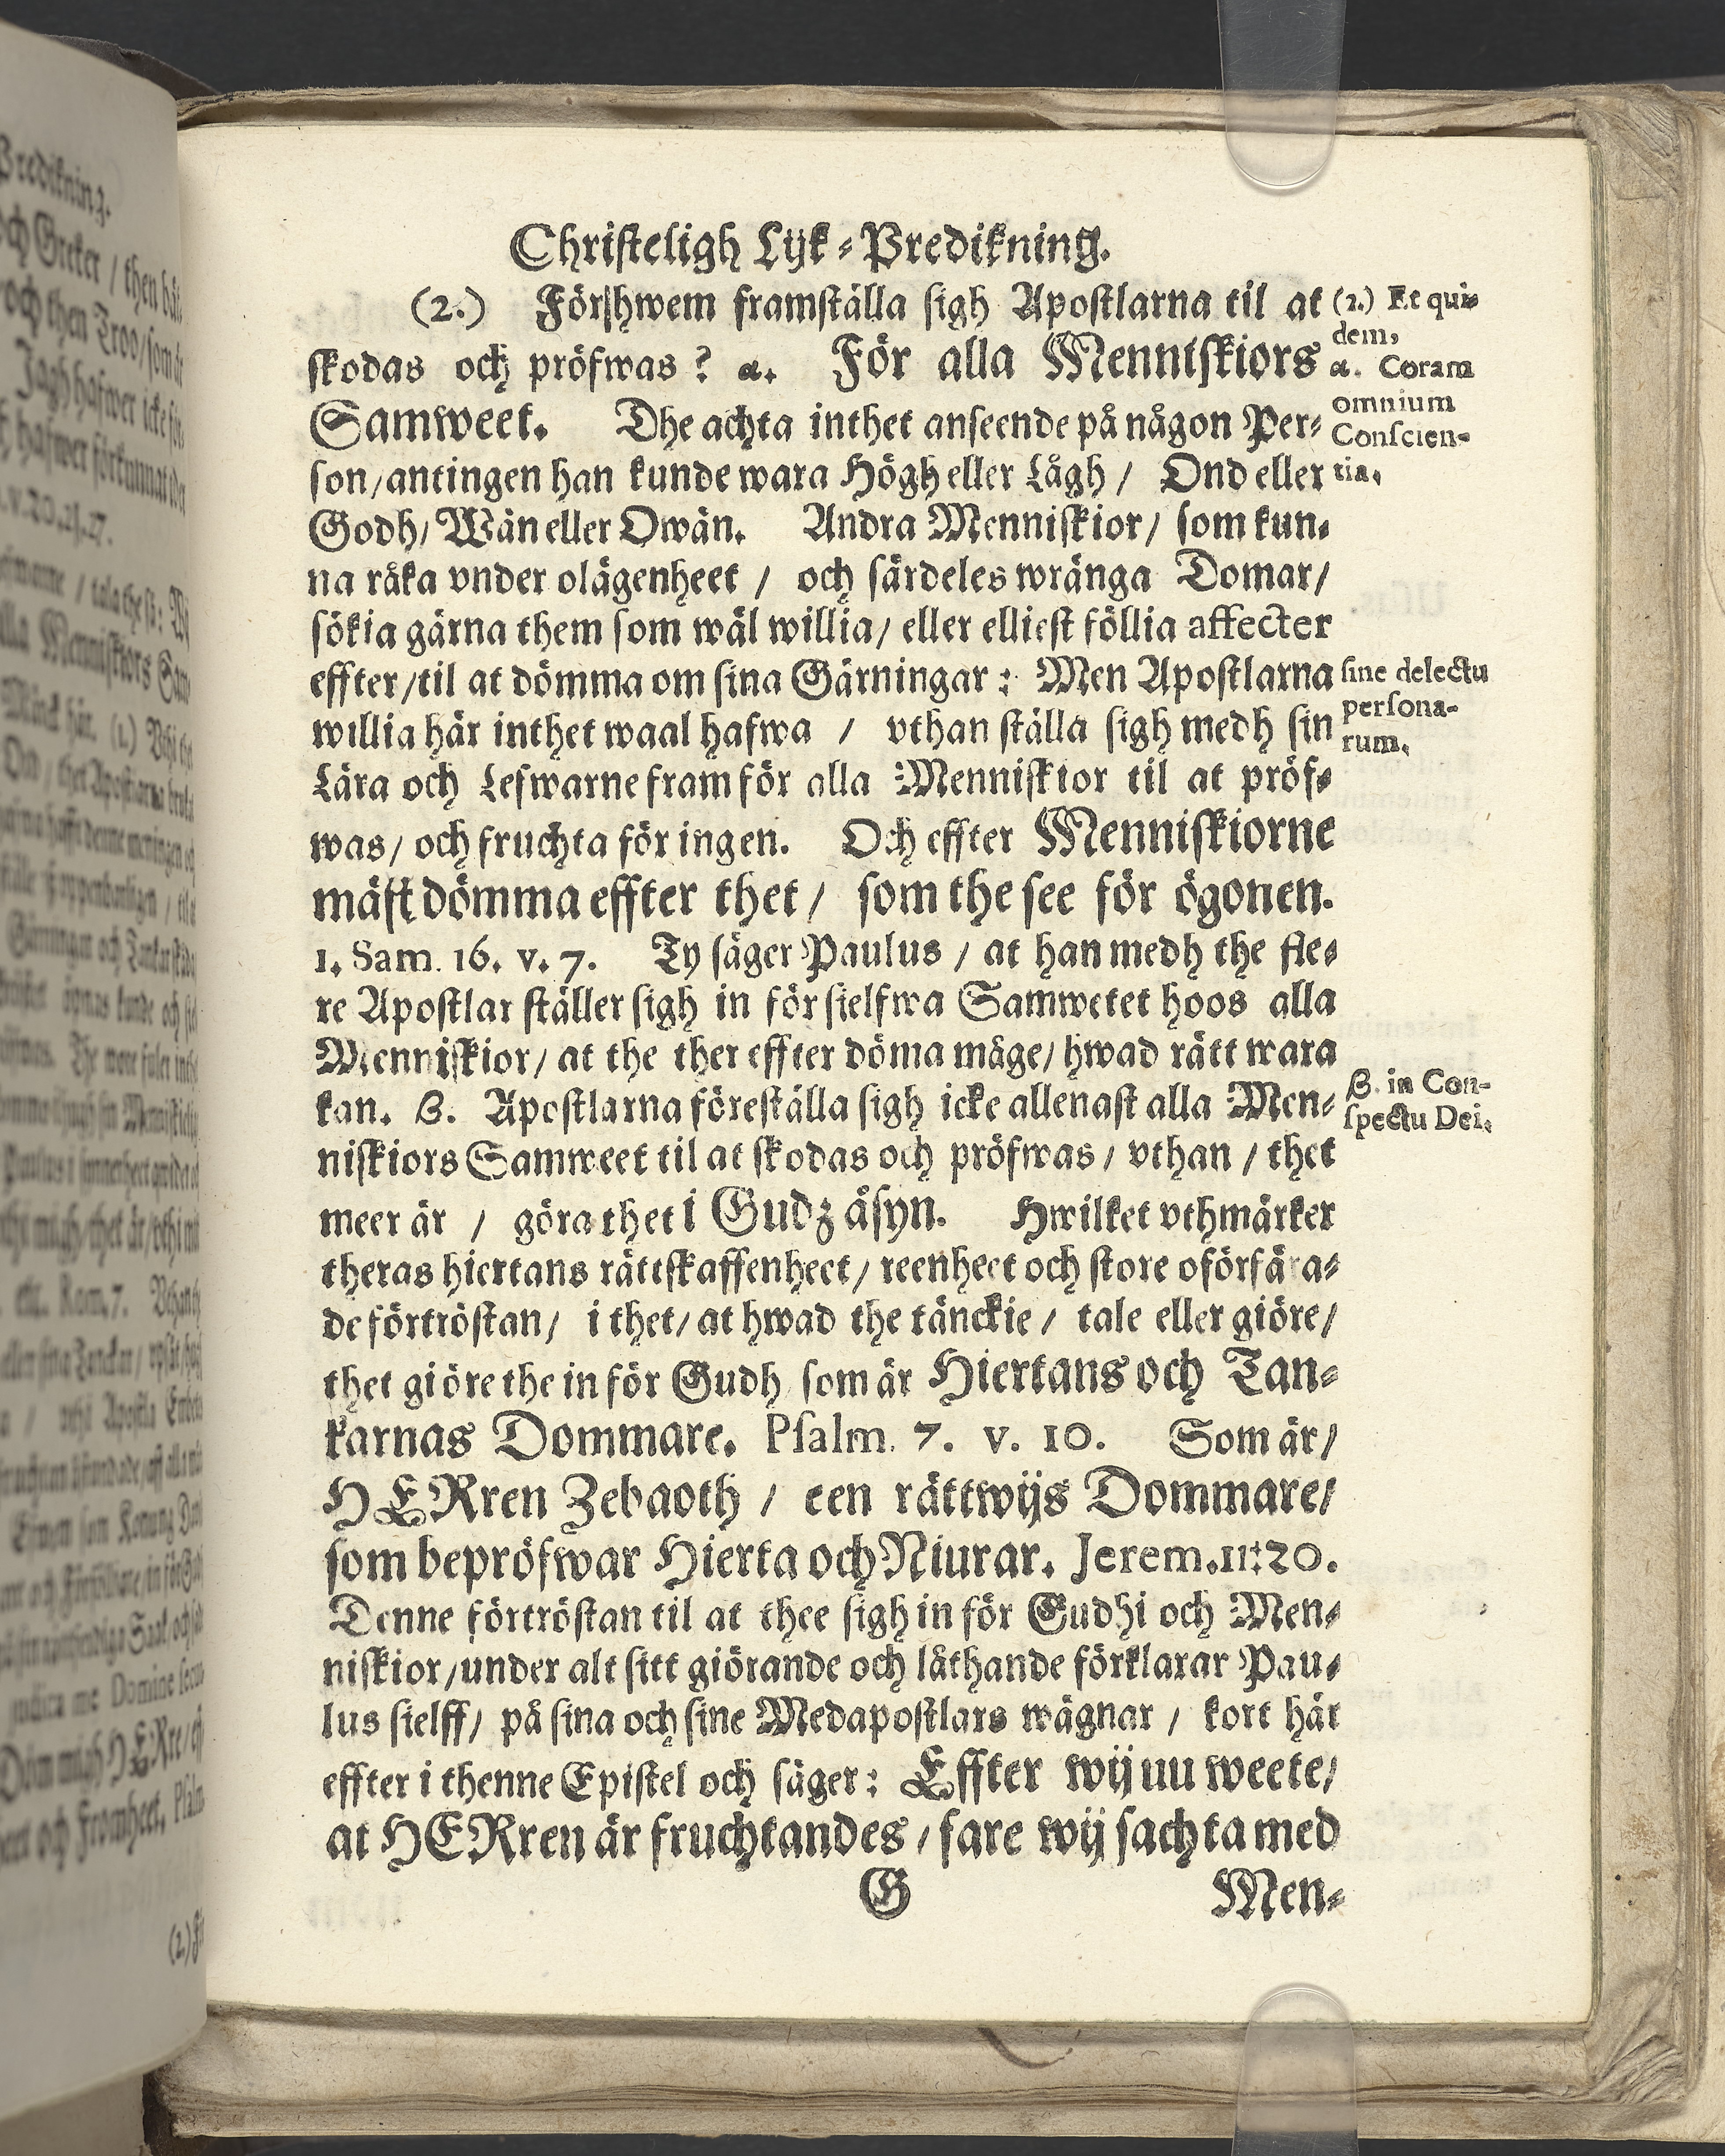 Christeligh Lijk-Predikning.
(2.) För hwem framställa sigh Apostlarna til at
skodas och pröfwas? α. För alla Menniskiors
Samweet. Dhe achta inthet anseende på någon Per-
son/antingen han kunde wara Högh eller Lågh / Ond eller
Godh/ Wän eller Owän. Andra Menniskior/ som kun-
na råka vnder olägenheet / och särdeles wränga Domar/
sökia gärna them som wäl willia/ eller elliest föllia affecter
effter/til at dömma om sina Gärningar: Men Apostlarna
willia här inthet waal hafwa / vthan ställa sigh medh sin
Lära och Lefwarne fram för alla Menniskior til at pröf-
was/ och fruchta för ingen. Och effter Menniskiorne
mäst dömma effter thet/ som the see för ögonen.
1. Sam. 16. v. 7. Ty säger Paulus / at han medh the fle-
re Apostlar ställer sigh in för sielfwa Samwetet hoos alla
Menniskior/ at the ther effter döma måge/ hwad rätt wara
kan. β. Apostlarna föreställa sigh icke allenast alla Men-
niskiors Samweet til at skodas och pröfwas/ vthan / thet
meer är / göra thet i Gudz åsyn. Hwilket vthmärker
theras hiertans rättskaffenheet/ reenheet och store oförfära-
de förtröstan/ i thet/ at hwad the tänckie/ tale eller giöre/
thet giöre the in för Gudh som är Hiertans och Tan-
karnas Dommare. Psalm. 7. v. 10. Som är/
HERren Zebaoth / een rättwijs Dommare/
som bepröfwar Hierta och Niurar. Jerem. 11:20.
Denne förtröstan til at thee sigh in för Gudhi och Men-
niskior/under alt sitt giörande och låthande förklarar Pau-
lus sielff/ på sina och sine Medapostlars wägnar / kort här
effter i thenne Epistel och säger: Effter wij nu weete/
at HERren är fruchtandes / fare wij sachta med
G Men-
(2.) Et qui-
dem,
α. Coram
omnium
Conscien-
tia.
sine delectu
persona-
rum.
β. in Con-
spectu Dei.